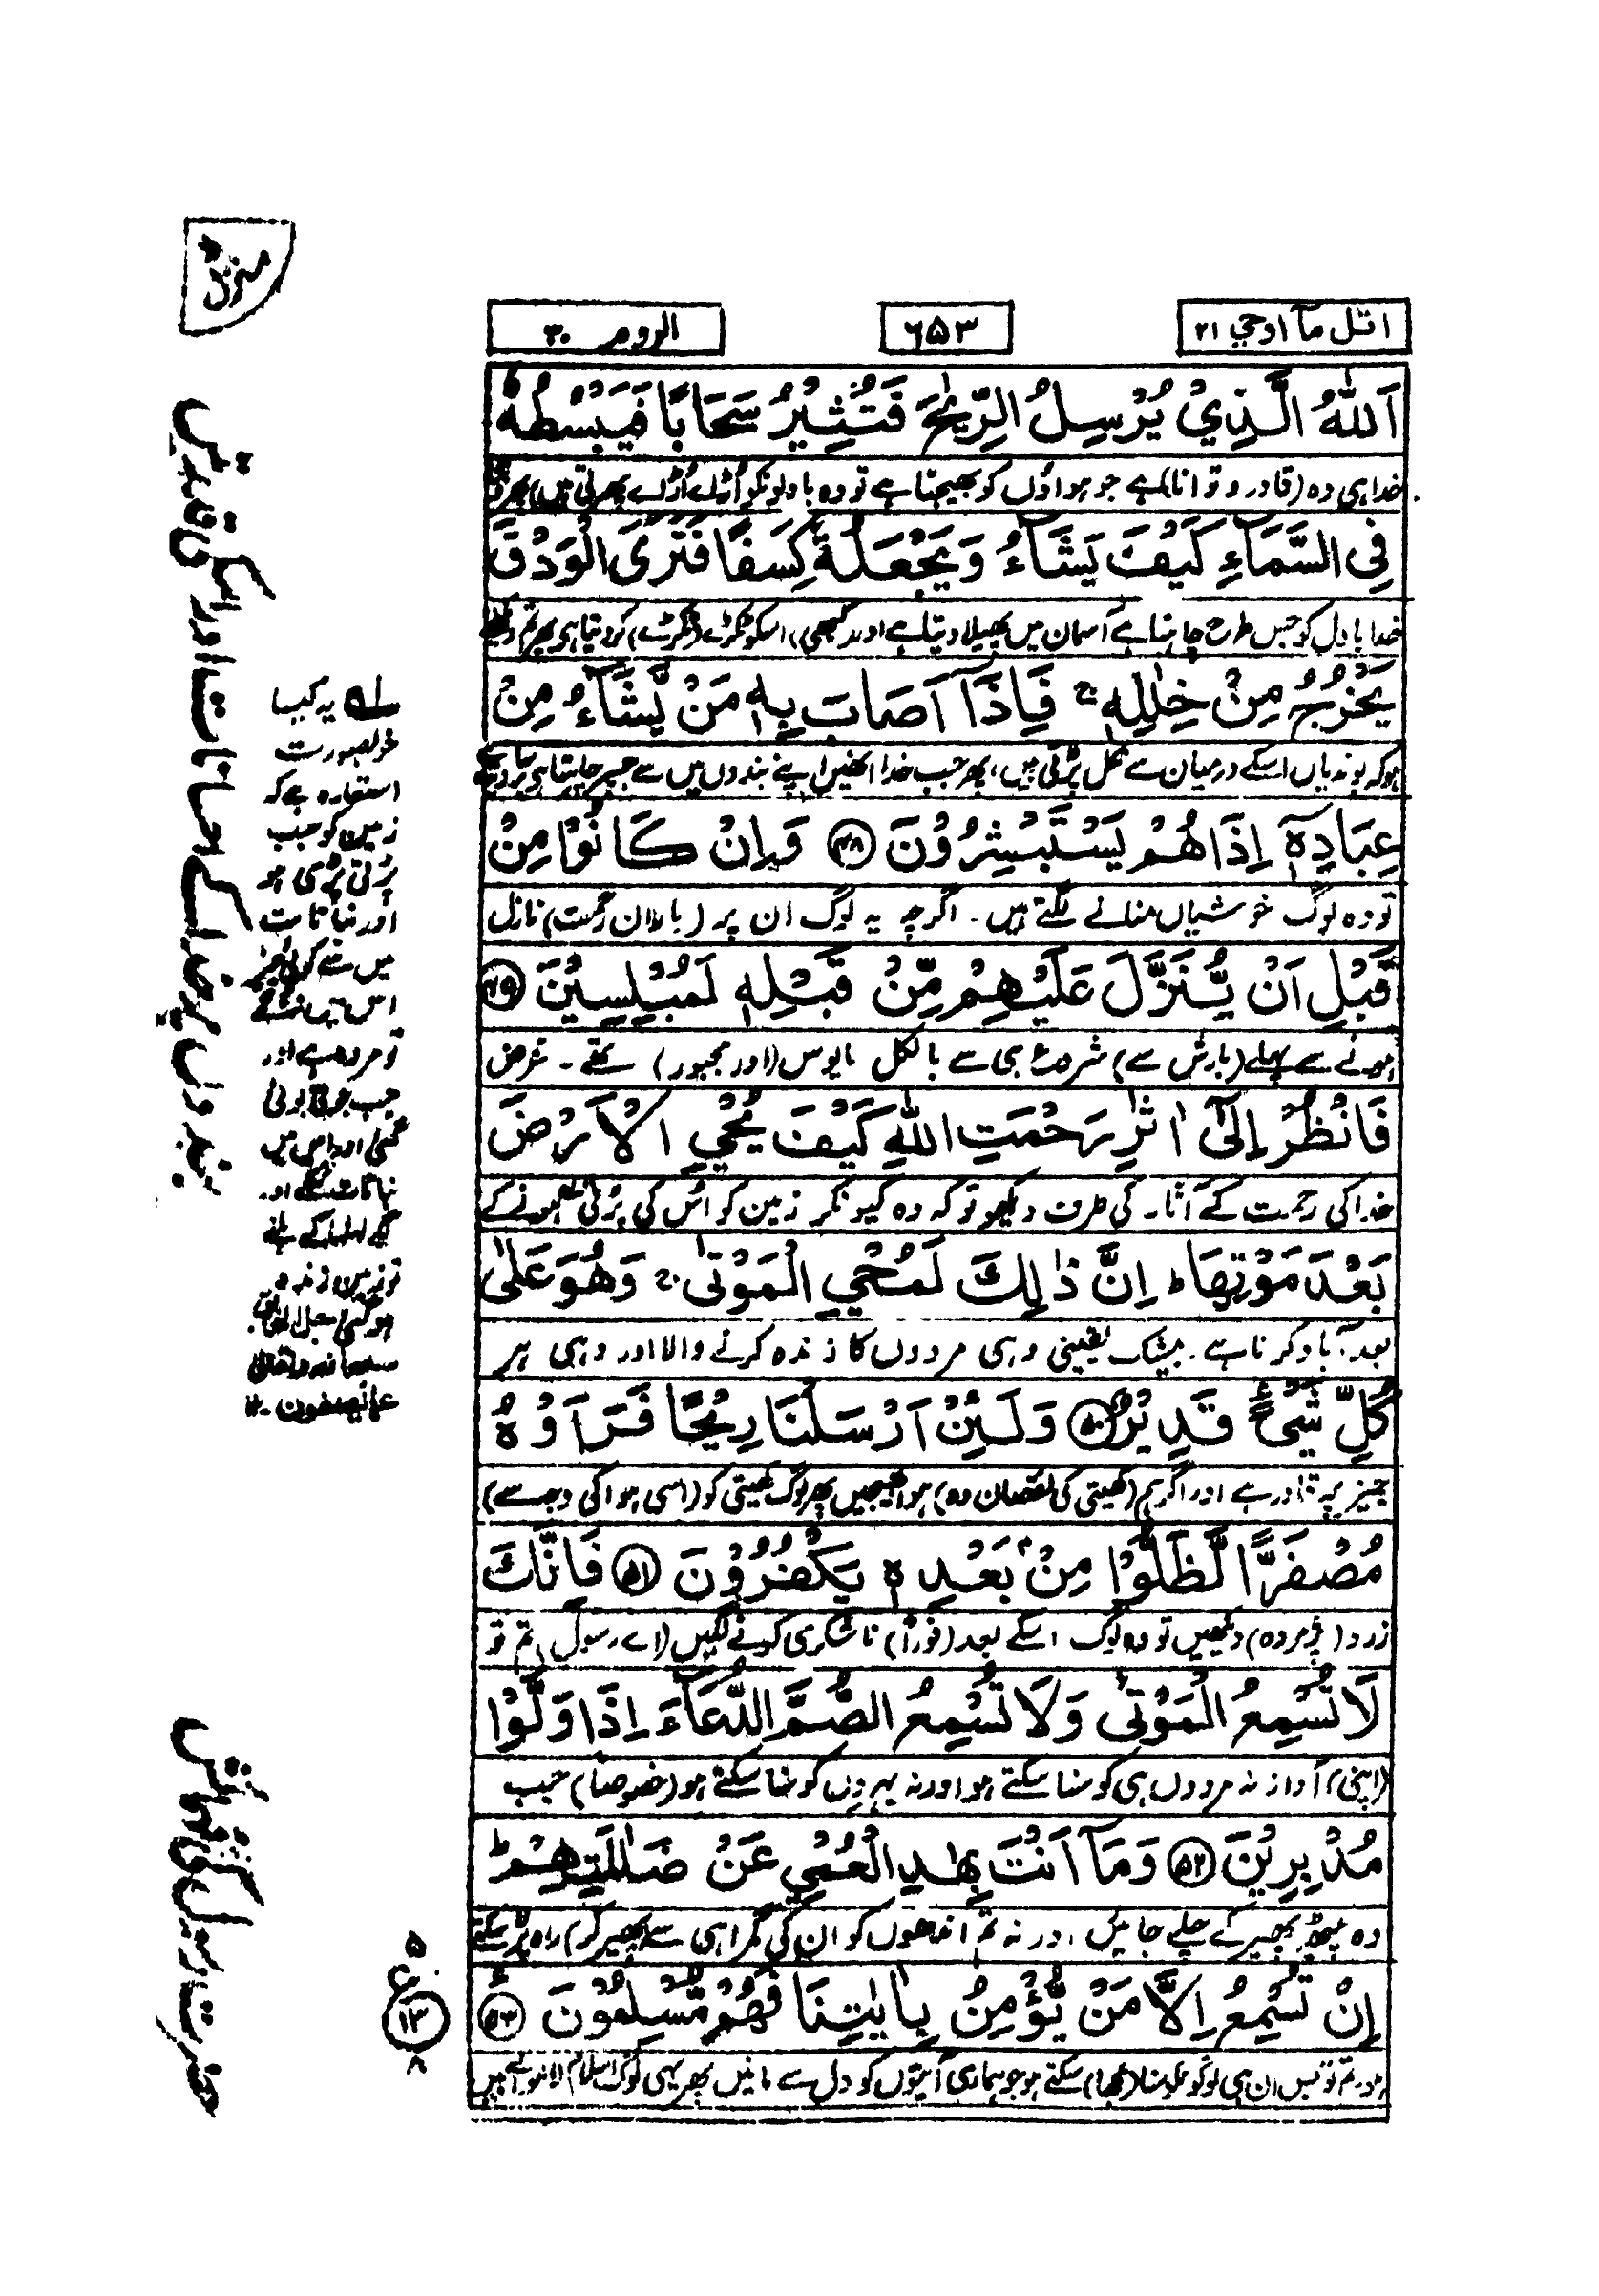 اتل مآ اوحي ۲۱
۶۵۳
الروم ۳۰
اَللّٰهُ الَّذِيْ يُرْسِلُ الرِّيٰحَ فَتُثِيْرُ سَحَابًا فَيَبْسُطُهٗ
خدا ہی وہ (قادر و توانا) ہے جو ہواؤں کو بھیجتا ہے تو وہ بادلونکو اُڑائے اُڑائے پھرتی ہیں پھر
فِي السَّمَآءِ كَيْفَ يَشَآءُ وَيَجْعَلُهٗ كِسَفًا فَتَرَى الْوَدْقَ
خدا بادل کو جس طرح چاہتا ہے آسمان میں پھیلا دیتا ہے اور (کبھی) اسکو ٹکڑے (ٹکڑے) کر دیتا ہے پھر تم دیکھتے
يَخْرُجُ مِنْ خِلٰلِهٖ ۚ فَاِذَآ اَصَابَ بِهٖ مَنْ يَّشَآءُ مِنْ
ہو کہ بوندیاں اسکے درمیان سے نکل پڑتی ہیں، پھر جب خدا انھیں اپنے بندوں میں سے جسپر چاہتا ہی
عِبَادِهٖٓ اِذَا هُمْ يَسْتَبْشِرُوْنَ ﴿۴۸﴾ وَاِنْ كَانُوْا مِنْ
تو وہ لوگ خوشیاں منانے لگتے ہیں۔ اگرچہ یہ لوگ ان پر (باران رحمت) نازل
قَبْلِ اَنْ يُّنَزَّلَ عَلَيْهِمْ مِّنْ قَبْلِهٖ لَمُبْلِسِيْنَ ﴿۴۹﴾
ہونے سے پہلے (بارش سے) شروع ہی سے بالکل مایوس (اور مجبور) تھے۔ غرض
فَانْظُرْ اِلٰٓى اٰثٰرِ رَحْمَتِ اللّٰهِ كَيْفَ يُحْيِ الْاَرْضَ
خدا کی رحمت کے آثار کی طرف دیکھو تو کہ وہ کیونکر زمین کو اُس کی پرتی ہونے کے
بَعْدَ مَوْتِهَا ؕ اِنَّ ذٰلِكَ لَمُحْيِ الْمَوْتٰى ۚ وَهُوَ عَلٰى
بعد آباد کرتا ہے۔ بیشک یقینی وہی مردوں کا زندہ کرنے والا اور وہی ہر
كُلِّ شَيْءٍ قَدِيْرٌ ﴿۵۰﴾ وَلَئِنْ اَرْسَلْنَا رِيْحًا فَرَاَوْهُ
چیز پر قادر ہے اور اگر ہم (کھیتی کی نقصان دہ) ہوا بھیجیں پھر لوگ کھیتی کو (اسی ہوا کی وجہ سے)
مُصْفَرًّا لَّظَلُّوْا مِنْۢ بَعْدِهٖ يَكْفُرُوْنَ ﴿۵۱﴾ فَاِنَّكَ
زرد (پژمردہ) دیکھیں تو وہ لوگ اسکے بعد (فوراً) ناشکری کرنے لگیں (اے رسول) تم تو
لَا تُسْمِعُ الْمَوْتٰى وَلَا تُسْمِعُ الصُّمَّ الدُّعَآءَ اِذَا وَلَّوْا
(اپنی) آواز نہ مردوں ہی کو سنا سکتے ہو اور نہ بہروں کو سنا سکتے ہو (خصوصاً) جب
مُدْبِرِيْنَ ﴿۵۲﴾ وَمَآ اَنْتَ بِهٰدِ الْعُمْيِ عَنْ ضَلٰلَتِهِمْ ؕ
وہ پیٹھ پھیر کے چلے جائیں اور نہ تم اندھوں کو ان کی گمراہی سے (پھیر کر) راہ پر
اِنْ تُسْمِعُ اِلَّا مَنْ يُّؤْمِنُ بِاٰيٰتِنَا فَهُمْ مُّسْلِمُوْنَ ﴿۵۳﴾
ان ہی لوگوں کو سنا (سمجھا) سکتے ہو جو ہماری آیتوں کو دل سے مانیں پھر یہی لوگ اسلام لانے
منزل
بندوں پر خدا کے احسانات اور اسکی قدرتیں
یہ کیسا
خوبصورت
استعارہ ہے کہ
زمین کو جب
پرتی پڑی ہو
اور نباتات
میں سے کوئی چیز
اس میں نہ
تو مردہ ہے اور
جب جوتی بوئی
گئی اور اس میں
نباتات
تو زمین زندہ
ہو گئی
سبحانه وتعالى
عما يصفون ۱۲
۵
ع
۱۳
۸